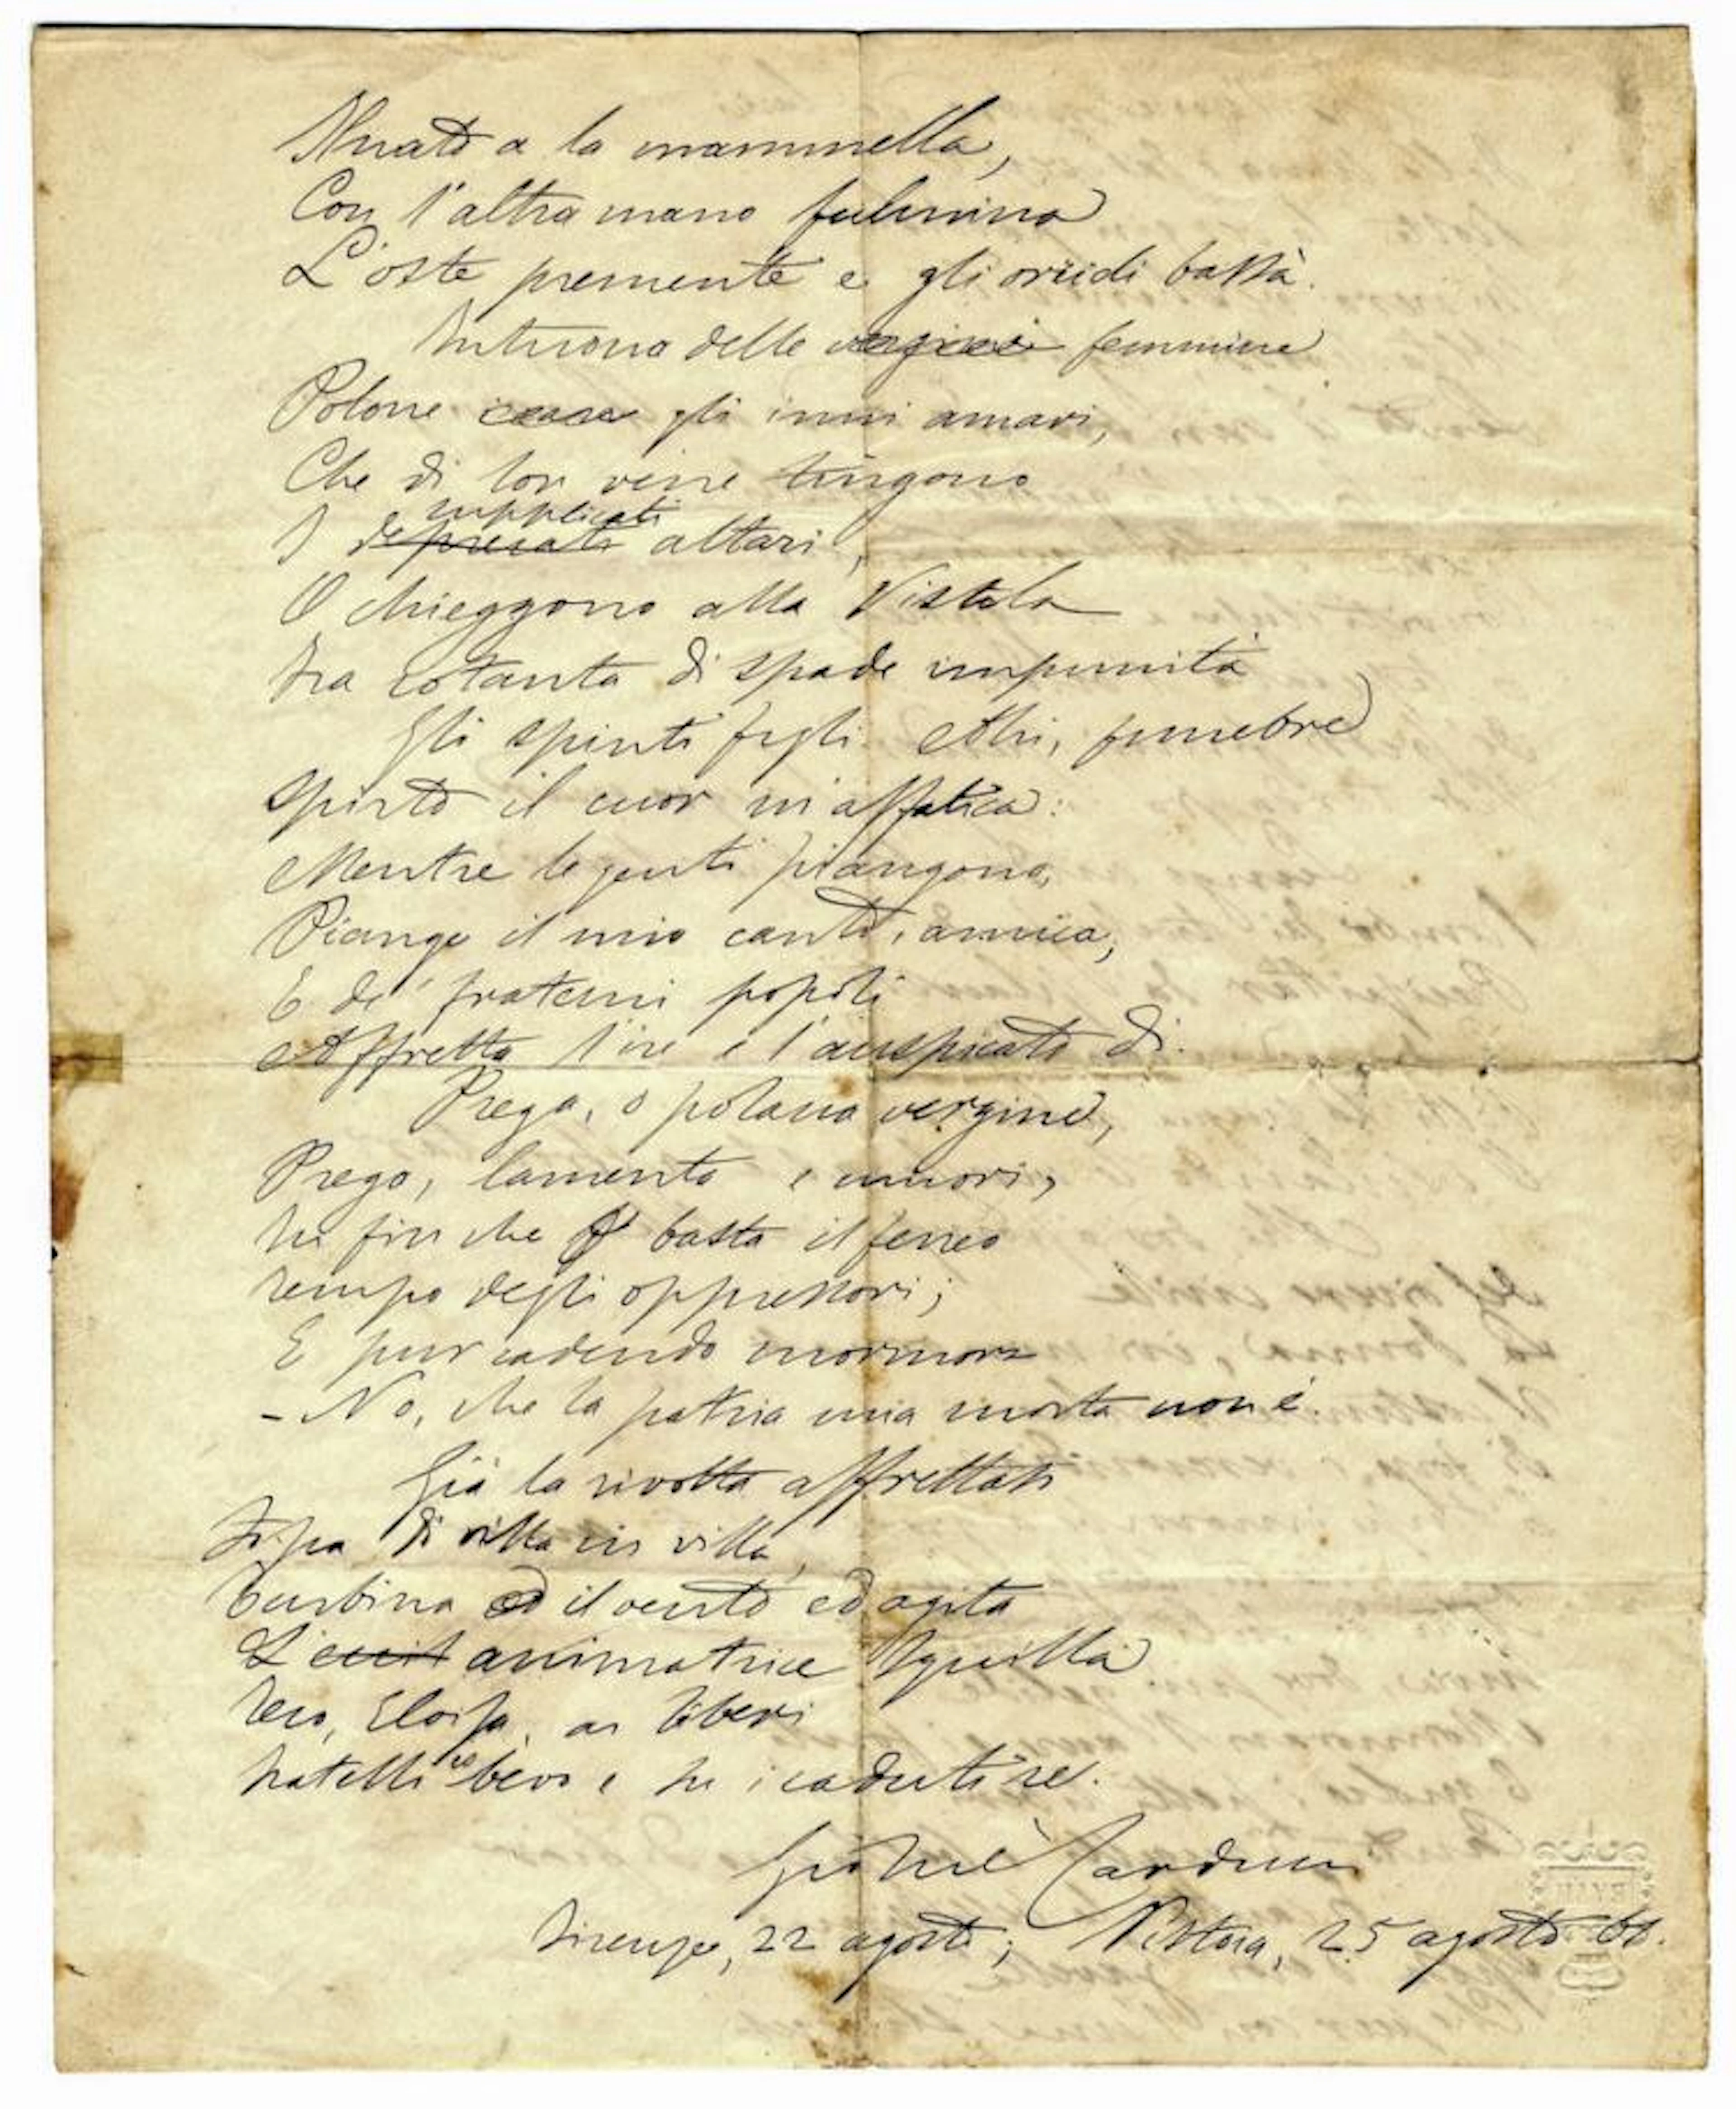 Nuato a la mammella,
Con l'altra mano fulmina
L'oste premente e gli orridi bassà.
Intuona delle vergini femmine
Polone gli inni amari,
Che di lor vene tingono
I deprecati supplicati altari,
O chieggono alla Vistola
Fra cotanta di spade impunità
Gli spinti figli. Ahi, funebre
Spirto il cuor m'affatica:
Mentre le genti piangono,
Piange il mio canto, amica,
E de' fraterni popoli
Affretta l'ire e l'auspicato dì.
Prega, o polona vergine,
Prega, lamenta e muori,
In fin che basta il ferreo
Tempo degli oppressori;
E pur cadendo mormora
- No, che la patria mia morta non è.
Già la rivolta affrettasi
di villa in villa,
Turbina ed il vento ed agita
L' animatrice squilla
Teco, Eloisa, ai liberi
Fratelli io bevo e su i caduti re.
Giosuè Carducci
Firenze, 22 agosto; Pistoia, 25 agosto